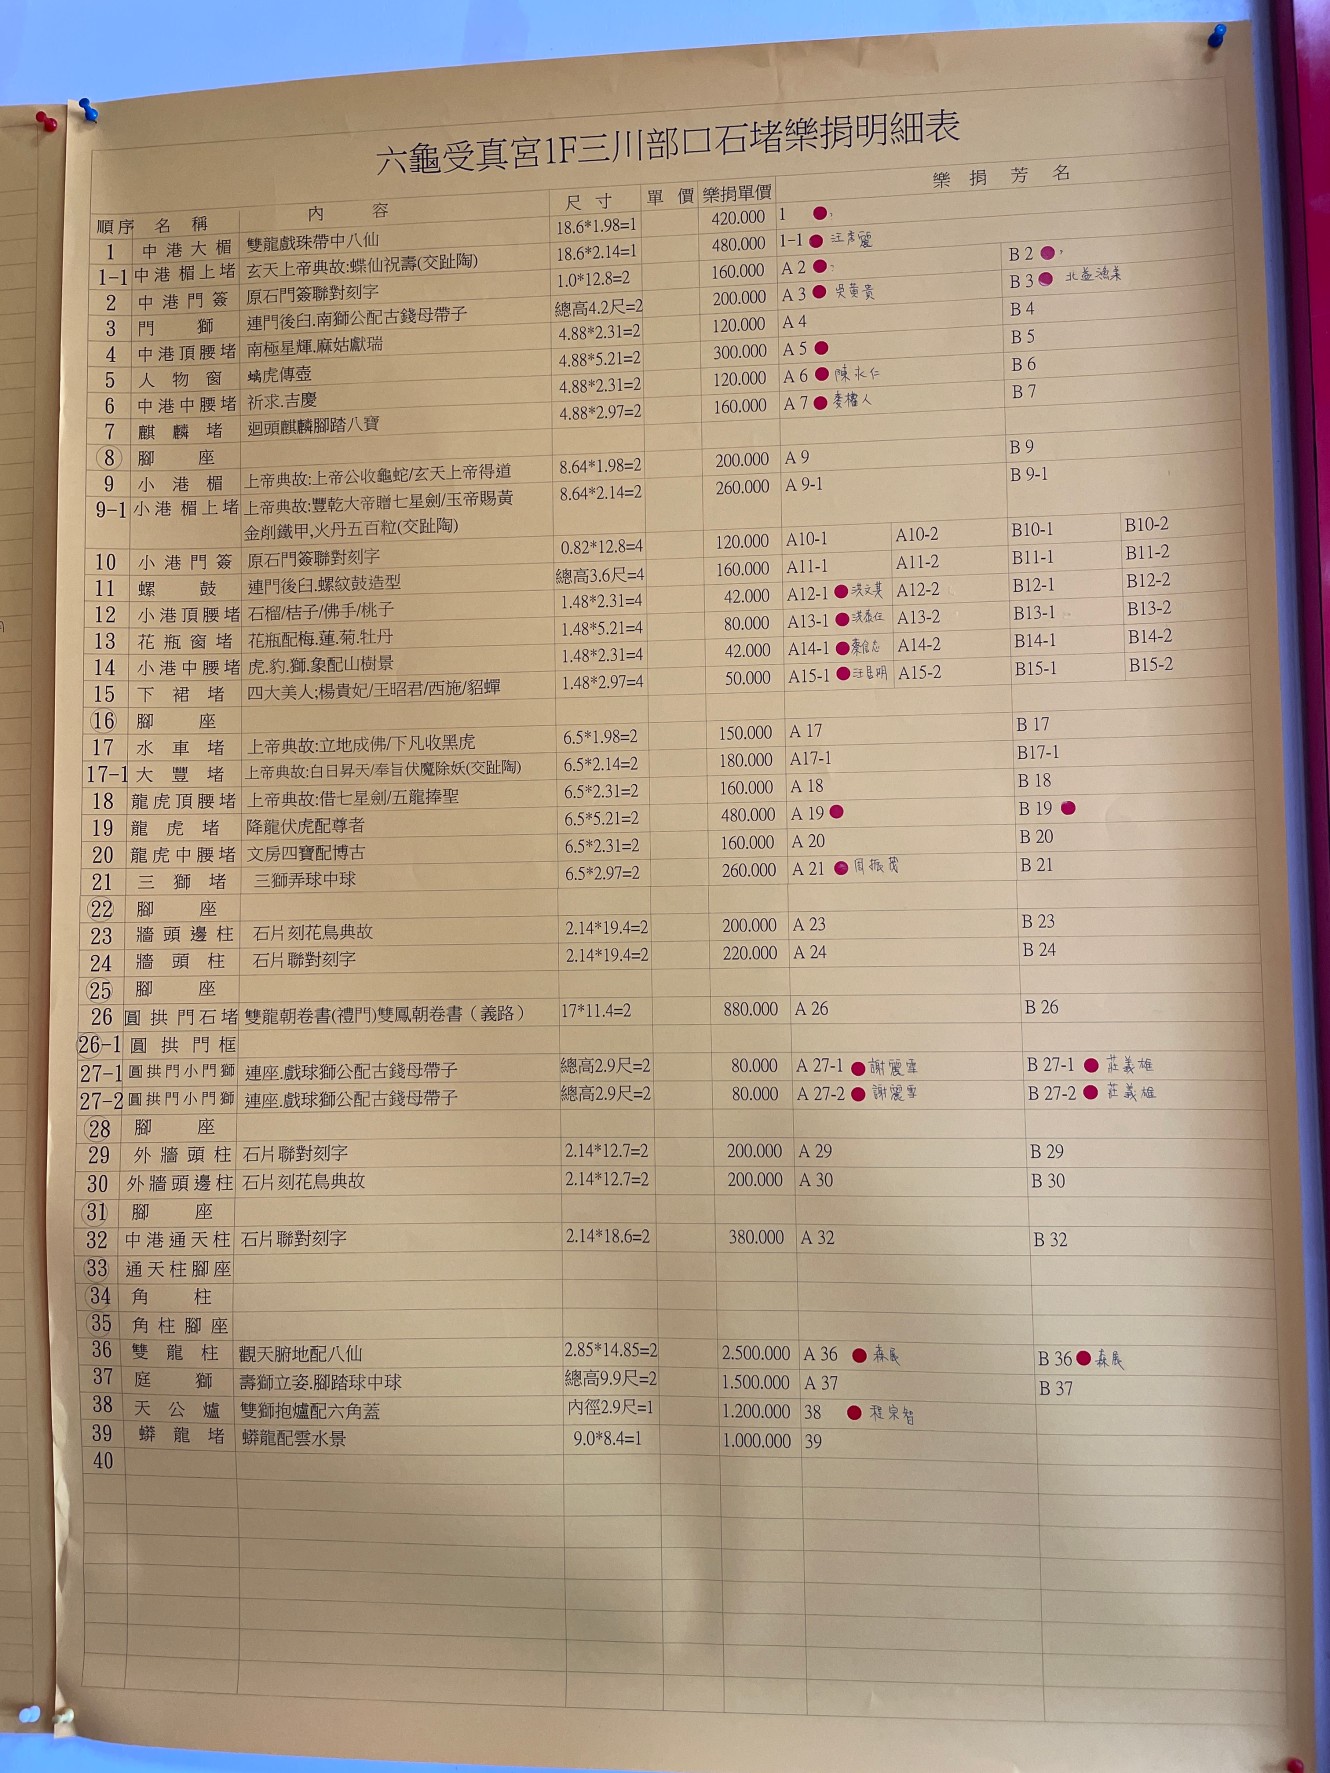 六龜受真宮1F三川部口石堵樂捐明細表
順序 名稱 內容 尺寸 單價 樂捐單價 樂捐芳名
1 中港大楣 雙龍戲珠帶中八仙 18.6*1.98=1 420.000 1
1-1 中港楣上堵 玄天上帝典故:蝶仙祝壽(交趾陶) 18.6*2.14=1 480.000 1-1 汪彥麗
2 中港門簽 原石門簽聯對刻字 1.0*12.8=2 160.000 A 2 B 2
3 門獅 連門後臼.南獅公配古錢母帶子 總高4.2尺=2 200.000 A 3 吳黃貴 B 3
4 中港頂腰堵 南極星輝.麻姑獻瑞 4.88*2.31=2 120.000 A 4 B 4
5 人物窗 螭虎傳壺 4.88*5.21=2 300.000 A 5 B 5
6 中港中腰堵 祈求.吉慶 4.88*2.31=2 120.000 A 6 陳永仁 B 6
7 麒麟堵 迴頭麒麟腳踏八寶 4.88*2.97=2 160.000 A 7 B 7
8 腳座
9 小港楣 上帝典故:上帝公收龜蛇/玄天上帝得道 8.64*1.98=2 200.000 A 9 B 9
9-1 小港楣上堵 上帝典故:豐乾大帝贈七星劍/玉帝賜黃 8.64*2.14=2 260.000 A 9-1 B 9-1
金削鐵甲,火丹五百粒(交趾陶)
10 小港門簽 原石門簽聯對刻字 0.82*12.8=4 120.000 A10-1 A10-2 B10-1 B10-2
11 螺鼓 連門後臼.螺紋鼓造型 總高3.6尺=4 160.000 A11-1 A11-2 B11-1 B11-2
12 小港頂腰堵 石榴/桔子/佛手/桃子 1.48*2.31=4 42.000 A12-1 洪文其 A12-2 B12-1 B12-2
13 花瓶窗堵 花瓶配梅.蓮.菊.牡丹 1.48*5.21=4 80.000 A13-1 A13-2 B13-1 B13-2
14 小港中腰堵 虎.豹.獅.象配山樹景 1.48*2.31=4 42.000 A14-1 A14-2 B14-1 B14-2
15 下裙堵 四大美人;楊貴妃/王昭君/西施/貂蟬 1.48*2.97=4 50.000 A15-1 A15-2 B15-1 B15-2
16 腳座
17 水車堵 上帝典故:立地成佛/下凡收黑虎 6.5*1.98=2 150.000 A 17 B 17
17-1 大豐堵 上帝典故:白日昇天/奉旨伏魔除妖(交趾陶) 6.5*2.14=2 180.000 A17-1 B17-1
18 龍虎頂腰堵 上帝典故:借七星劍/五龍捧聖 6.5*2.31=2 160.000 A 18 B 18
19 龍虎堵 降龍伏虎配尊者 6.5*5.21=2 480.000 A 19 B 19
20 龍虎中腰堵 文房四寶配博古 6.5*2.31=2 160.000 A 20 B 20
21 三獅堵 三獅弄球中球 6.5*2.97=2 260.000 A 21 周振茂 B 21
22 腳座
23 牆頭邊柱 石片刻花鳥典故 2.14*19.4=2 200.000 A 23 B 23
24 牆頭柱 石片聯對刻字 2.14*19.4=2 220.000 A 24 B 24
25 腳座
26 圓拱門石堵 雙龍朝卷書(禮門)雙鳳朝卷書（義路） 17*11.4=2 880.000 A 26 B 26
26-1 圓拱門框
27-1 圓拱門小門獅 連座.戲球獅公配古錢母帶子 總高2.9尺=2 80.000 A 27-1 謝麗雪 B 27-1 莊義雄
27-2 圓拱門小門獅 連座.戲球獅公配古錢母帶子 總高2.9尺=2 80.000 A 27-2 謝麗雪 B 27-2 莊義雄
28 腳座
29 外牆頭柱 石片聯對刻字 2.14*12.7=2 200.000 A 29 B 29
30 外牆頭邊柱 石片刻花鳥典故 2.14*12.7=2 200.000 A 30 B 30
31 腳座
32 中港通天柱 石片聯對刻字 2.14*18.6=2 380.000 A 32 B 32
33 通天柱腳座
34 角柱
35 角柱腳座
36 雙龍柱 觀天腑地配八仙 2.85*14.85=2 2.500.000 A 36 森展 B 36 森展
37 庭獅 壽獅立姿.腳踏球中球 總高9.9尺=2 1.500.000 A 37 B 37
38 天公爐 雙獅抱爐配六角蓋 內徑2.9尺=1 1.200.000 38 程宗智
39 蟒龍堵 蟒龍配雲水景 9.0*8.4=1 1.000.000 39
40